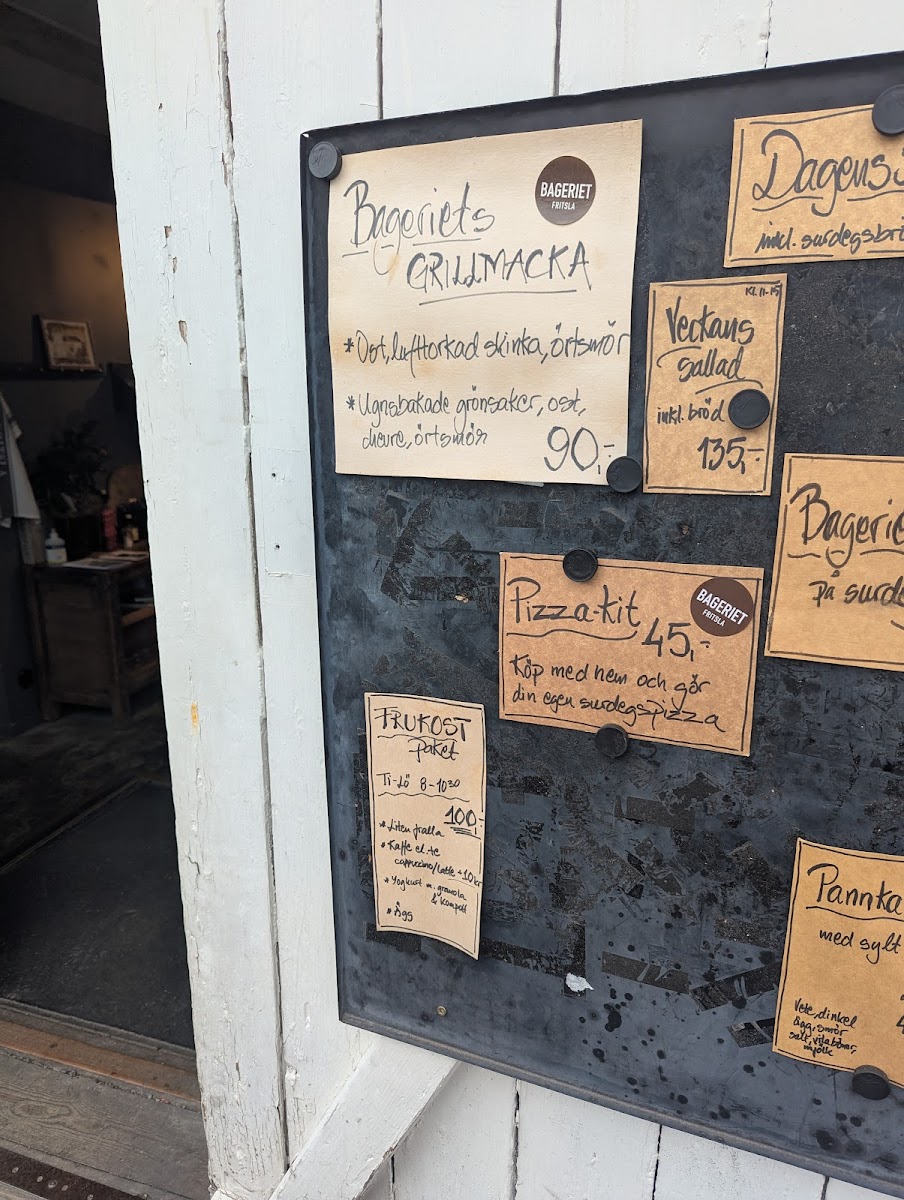 Bageriets
GRILLMACKA
BAGERIET
FRITSLA
*Ost, lufttorkad skinka, örtsmör
*Ugnsbakade grönsaker, ost,
cheure, örtsmör
90,-
Dagens
inkl. surdegsbrö
Kl. 11-15
Veckans
Sallad
inkl. bröd
135,-
Bagerie
på surde
Pizza-kit
45,-
BAGERIET
FRITSLA
Köp med hem och gör
din egen surdegspizza
FRUKOST
paket
Ti-Lö 8-10³⁰
100,-
*Liten fralla
*Kaffe el. te
cappuccino/latte +10kr
*Yoghurt m. granola
& kompott
*Ägg
Pannka
med sylt
4
Vete, dinkel
ägg, smör
salt, vita bönor,
mjölk